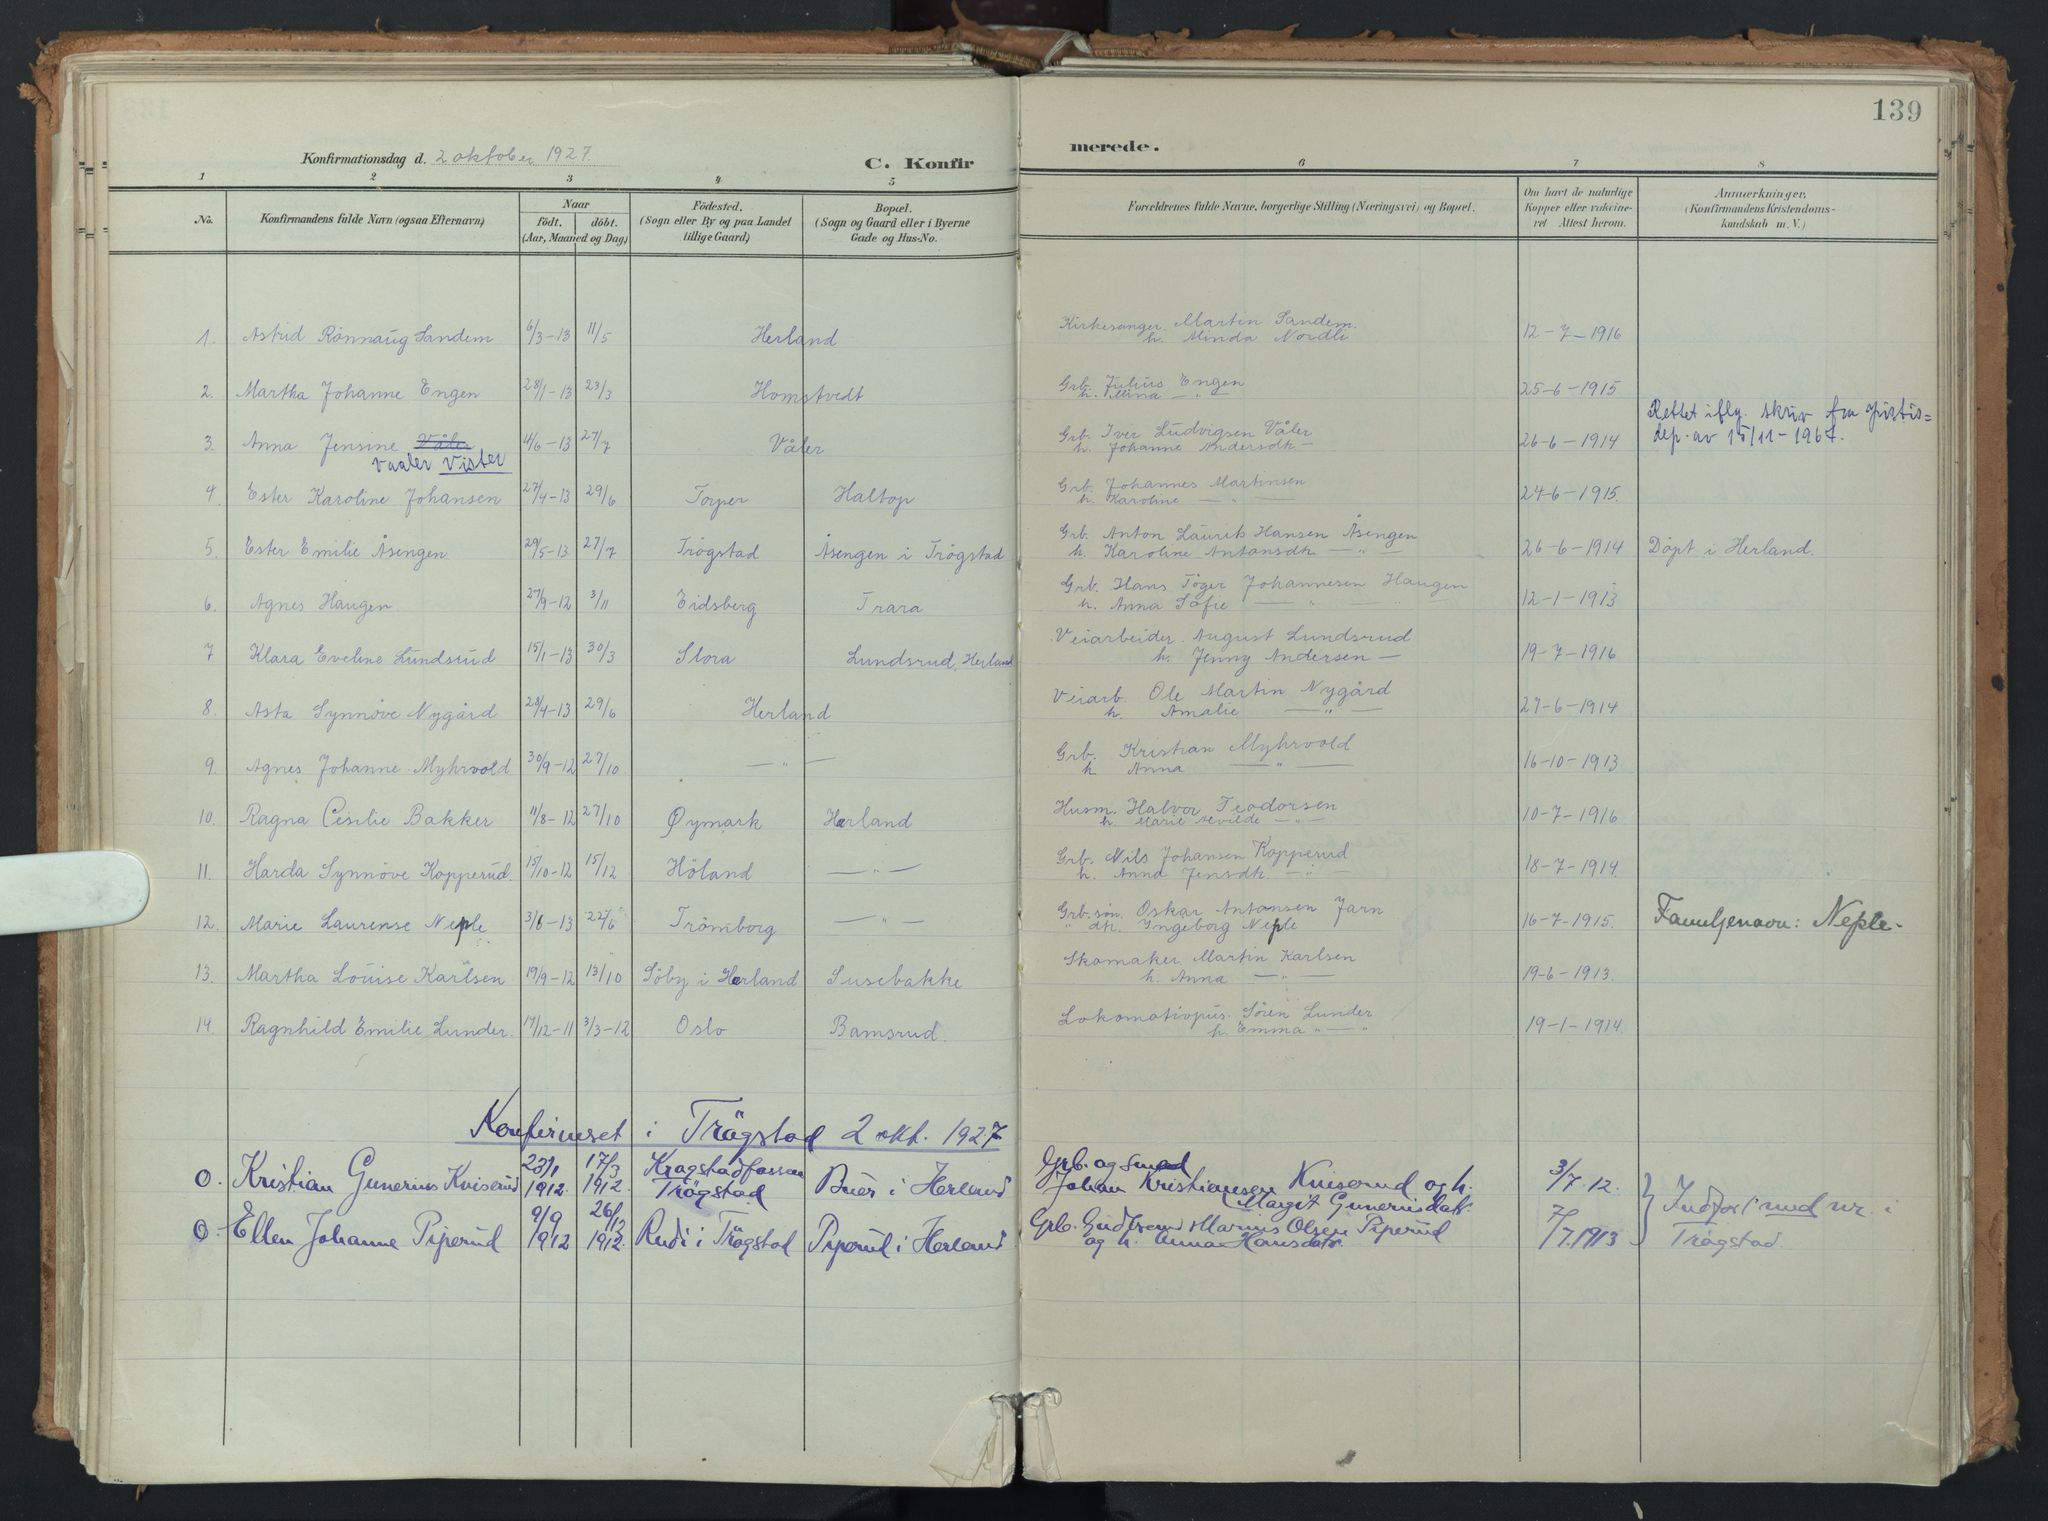 139
Konfirmationsdag d. 2 oktober 1927.
C. Konfirmerede.
1 2 3 4 5 6 7 8
No. | Konfirmandens fulde Navn (ogsaa Efternavn) | Naar födt. döbt. (Aar, Maaned og Dag) | Födested. (Sogn eller By og paa Landet tillige Gaard) | Bopæl. (Sogn og Gaard eller i Byerne Gade og Hus-No. | Forældrenes fulde Navne, borgerlige Stilling (Næringsvei) og Bopæl. | Om havt de naturlige Kopper eller vakcineret Attest herom. | Anmærkninger. (Konfirmandens Kristendomskundskab m. V.)
1. Astrid Rønnaug Sandem 6/3-13 11/5 Herland Kirkesanger Martin Sandem. h. Minda Nordli 12-7-1916
2. Martha Johanne Engen 28/1-13 23/3 Homstvedt Grb. Julius Engen h. — " — 25-6-1915
3. Anna Jensine Våler Vaaler Vister 4/6-13 27/7 Våler Grb. Iver Ludvigsen Våler h. Johanne Andersdt — 26-6-1914 Rettet iflg. skriv fra justisdep. av 15/11-1967.
4. Ester Karoline Johansen 27/4-13 29/6 Torper Haltop Grb. Johannes Martinsen h. Karoline — " — 24-6-1915.
5. Ester Emilie Åsengen 29/5-13 27/7 Trögstad Åsengen i Trögstad Grb. Anton Laurits Hansen Åsengen h. Karoline Antonsdt. — " — 26-6-1914 Döpt i Herland.
6. Agnes Haugen 27/9-12 3/11 Eidsberg Trara Grb. Hans Töger Johannesen Haugen h. Anna Sofie — " — 12-1-1913
7 Klara Eveline Lundsrud 15/1-13 30/3 Slora Lundsrud, Herland Veiarbeider August Lundsrud h. Jenny Andersen — 19-7-1916
8. Asta Synnöve Nygård 28/4-13 29/6 Herland Veiarb. Ole Martin Nygård h. Amalie — " — 27-6-1914
9. Agnes Johanne Myhrvold 30/9-12 27/10 — " — Grb. Kristian Myhrvold h. Anna — " — 16-10-1913
10. Ragna Cesilie Bakker 11/8-12 27/10 Øymark Herland Husm. Halvor Teodorsen h. Marie Alvilde — " — 10-7-1916
11. Harda Synnöve Kopperud. 15/10-12 15/12 Höland — " — Grb. Nils Johansen Kopperud h. Anna Jensdt. — " — 18-7-1914.
12. Marie Laurense Neple 3/6-13 22/6 Trömborg — " — Grb. sön. Oskar Antonsen Jarn " dtr. Ingeborg Neple 16-7-1915. Familjenavn: Neple.
13. Martha Louise Karlsen 19/9-12 13/10 Söby i Herland Susebakke Skomaker Martin Karlsen h. Anna — " — 19-6-1913.
14. Ragnhild Emilie Lunder. 17/12-11 3/3-12 Oslo Bamsrud. Lokomativpus. Sören Lunder h. Emma — " — 19-1-1914.
Konfirmeret i Trögstad 2 okt. 1927
O. Kristian Gunerius Kviserud 23/1 1912. 17/3 1912. Kragstadfossen Trögstad Buer i Herland Grb. og smed Johan Kristiansen Kviserud og h. Margit Gunerisdatt. 3/7.12.
O. Ellen Johanne Piperud 9/9 1912 26/12 1912. Rudi i Trögstad Piperud i Herland Grb. Gudbrand Marius Olsen Piperud og h. Anna Hansdatr. 7/7.1913 } Indført med nr. i Trögstad.